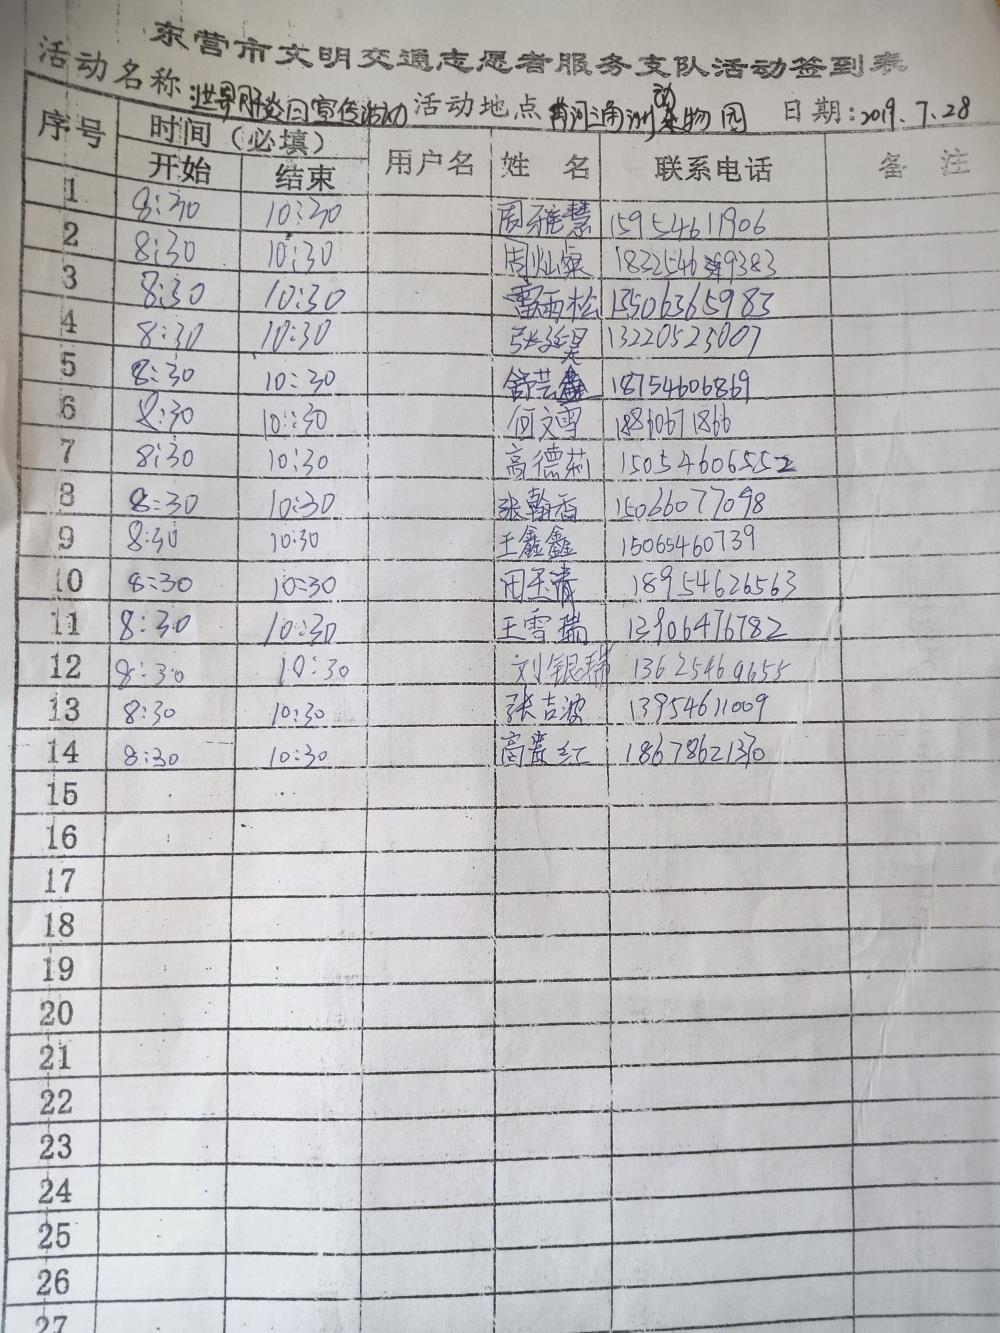 东营市文明交通志愿者服务支队活动签到表
活动名称 世界肝炎日宣传活动 活动地点 黄河三角洲动植物园 日期:2019.7.28
序号 时间(必填) 用户名 姓名 联系电话 备注
开始 结束
1 8:30 10:30 周雅慧 15954611906
2 8:30 10:30 周灿 1832546 9383
3 8:30 10:30 雷雨松 13506365983
4 8:30 10:30 张 13220525007
5 8:30 10:30 舒芸鑫 18754606869
6 8:30 10:30 何文雪
7 8:30 10:30 高德莉 15054606552
8 8:30 10:30 张翰香 15066077098
9 8:30 10:30 王鑫鑫 15065460739
10 8:30 10:30 周玉青 18954626563
11 8:30 10:30 王雪瑞 13906476782
12 8:30 10:30 刘银瑞 13625469655
13 8:30 10:30 张吉波 13954611009
14 8:30 10:30 高贵红 18678621370
15
16
17
18
19
20
21
22
23
24
25
26
27